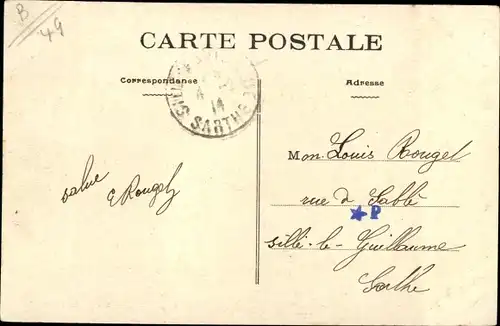 B
49
CARTE POSTALE
Correspondance
Adresse
SARTHE
14
Mon. Louis Rouget
rue d Sablé
P
sillé-le-Guillaume
Sarthe
salue